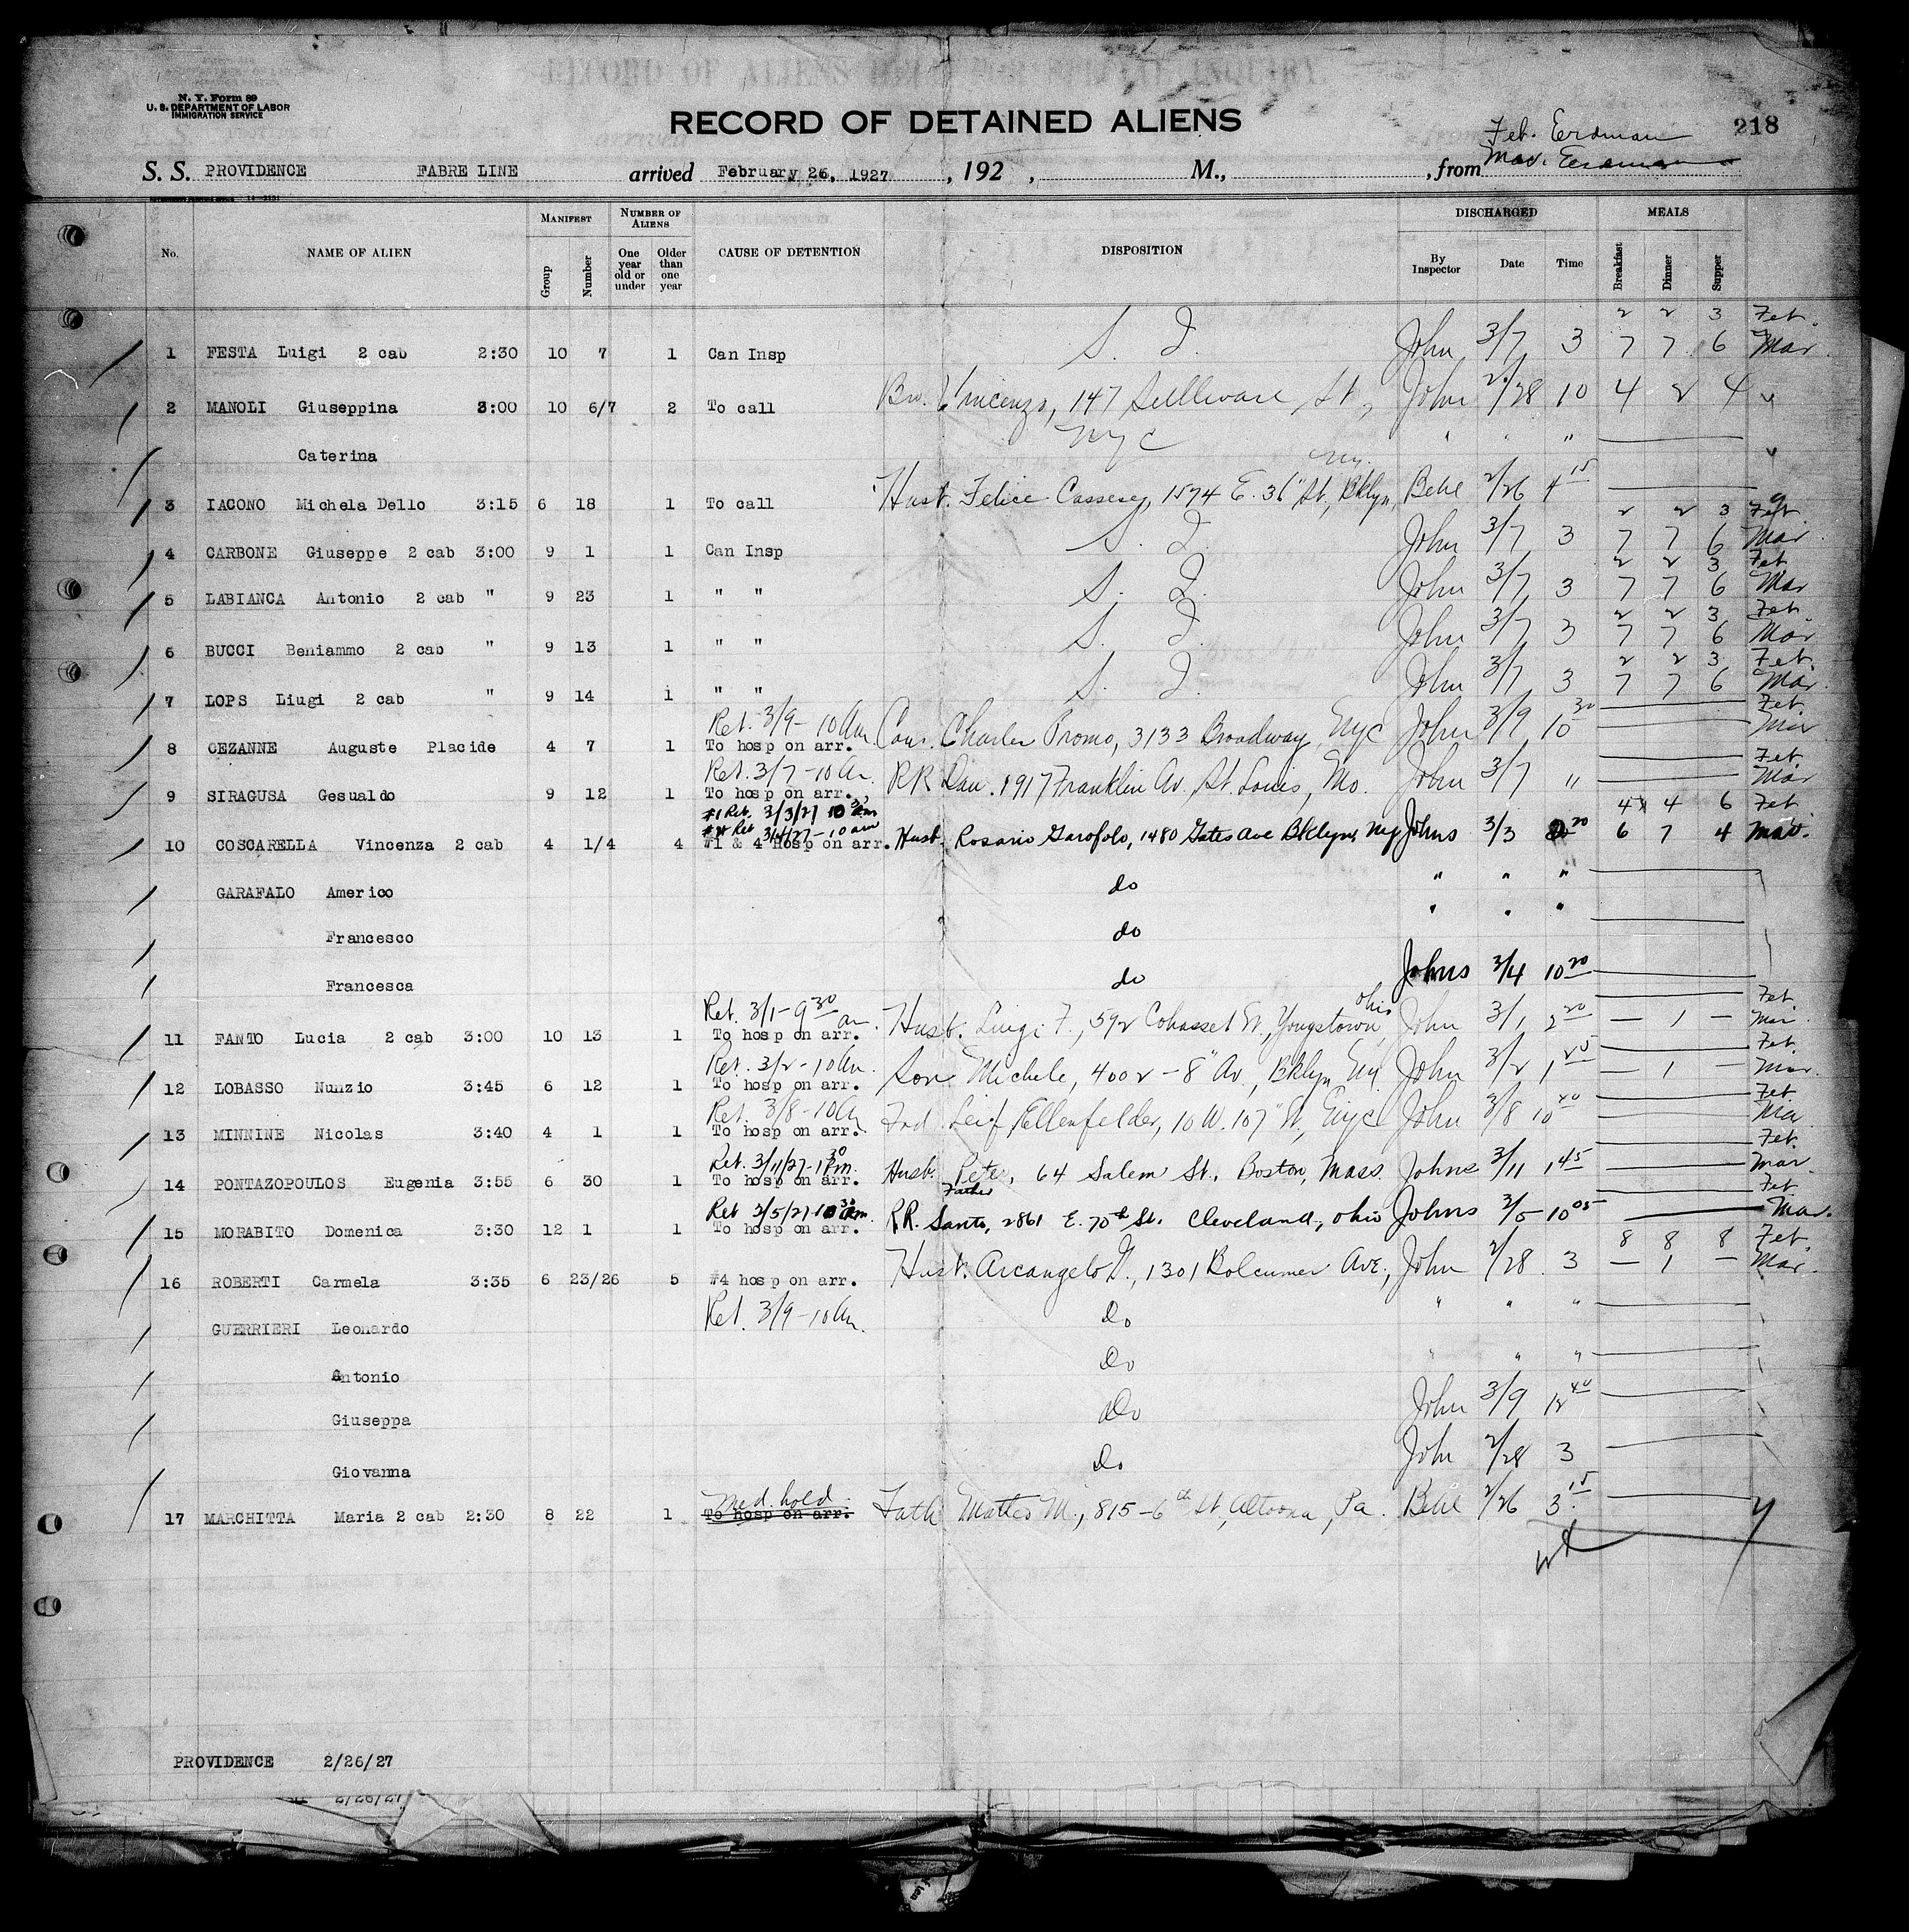 N. Y. Form 89
U. S. DEPARTMENT OF LABOR
IMMIGRATION SERVICE
RECORD OF DETAINED ALIENS
218
Feb. Eerdman
Mar. Eerdman
S. S. PROVIDENCE FABRE LINE arrived February 26, 1927 , 192 , M., , from
No. NAME OF ALIEN MANIFEST Group Number NUMBER OF ALIENS One year old or under Older than one year CAUSE OF DETENTION DISPOSITION DISCHARGED By Inspector Date Time MEALS Breakfast Dinner Supper
2 2 3 Feb.
1 FESTA Luigi 2 cab 2:30 10 7 1 Can Insp S. I. John 3/7 3 7 7 6 Mar.
2 MANOLI Giuseppina 3:00 10 6/7 2 To call Bro. Vincenzo, 147 St, John 2/28 10 4 2 4
NYC
Caterina " " "
N.y.
3 IACONO Michela Dello 3:15 6 18 1 To call Husb. Felice 1574 E. 36" St, Bklyn, 2/26 4 15
2 2 3 Feb.
4 CARBONE Giuseppe 2 cab 3:00 9 1 1 Can Insp S. I. John 3/7 3 7 7 6 Mar.
2 2 3 Feb
5 LABIANCA Antonio 2 cab " 9 23 1 " " S. I. John 3/7 3 7 7 6 Mar
2 2 3 Feb.
6 BUCCI Beniammo 2 cab " 9 13 1 " " S. I. John 3/7 3 7 7 6 Mar
2 2 3 Feb.
7 LOPS Liugi 2 cab " 9 14 1 " " S. I. John 3/7 3 7 7 6 Mar.
Ret. 3/9 - 10 Am Feb.
8 CEZANNE Auguste Placide 4 7 1 To hosp on arr. Cous. Charles Promo, 3133 Broadway, Nyc John 3/9 10 30 Mar
Ret. 3/7 - 10 Am. Feb.
9 SIRAGUSA Gesualdo 9 12 1 To hosp on arr. RR 1917 Franklin Av. St. Louis, Mo. John 3/7 " Mar
#1 Ret. 3/3/27 10 30 Am 4 4 6 Feb
#4 Ret 3/4/27 - 10 am
10 COSCARELLA Vincenza 2 cab 4 1/4 4 #1 & 4 Hosp on arr. Husb. Rosario Garofolo, 1480 Gates Ave Bklyn, Ny Johns 3/3 20 6 7 4 Mar.
GARAFALO Americo do " " "
Francesco do " " "
Francesca do Johns 3/4 10 20
Ret. 3/1 - 9 30 am. Ohio Feb.
11 FANTO Lucia 2 cab 3:00 10 13 1 To hosp on arr. Husb. Luigi F., 592 Cohasset St., Yongstown, John 3/1 2 20 — 1 — Mar.
Ret. 3/2 - 10 Am. Feb.
12 LOBASSO Nunzio 3:45 6 12 1 To hosp on arr. Son Michele, 4002 - 8" Av., Bklyn Ny. John 3/2 1 — 1 — Mar.
Ret. 3/8 - 10 Am Feb.
13 MINNINE Nicolas 3:40 4 1 1 To hosp on arr. Leif Ellenfelder, 10 W. 107" St, Nyc John 3/8 10 40 Mar
Ret. 3/11/27 - 1 30 Pm. Feb.
14 PONTAZOPOULOS Eugenia 3:55 6 30 1 To hosp on arr. Husb. Peter, 64 Salem St. Boston, Mass. Johns 3/11 1 45 Mar.
Ret 3/5/27 10 30 am. Father Feb
15 MORABITO Domenica 3:30 12 1 1 To hosp on arr. RR. Santo, 2861 E. 70th St. Cleveland, Ohio Johns 3/5 10 05 Mar.
8 8 8 Feb.
16 ROBERTI Carmela 3:35 6 23/26 5 #4 hosp on arr. Husb. Arcangelo G., 1301 Ave., John 2/28 3 — 1 — Mar.
GUERRIERI Leonardo Ret. 3/9 - 10 Am. Do " " "
Antonio Do " " "
Giuseppa Do John 3/9 12 40
Giovanna Do John 2/28 3
Med. hold.
17 MARCHITTA Maria 2 cab 2:30 8 22 1 To hosp on arr. Fath Matteo M., 815 - 6th St, Altoona, Pa. 2/26 3 15
PROVIDENCE 2/26/27
2/26/27